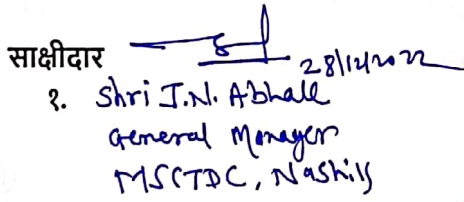 साक्षीदार 28/12/2022
१. Shri J.N. Abhale
General Manager
MSCTDC, Nashik